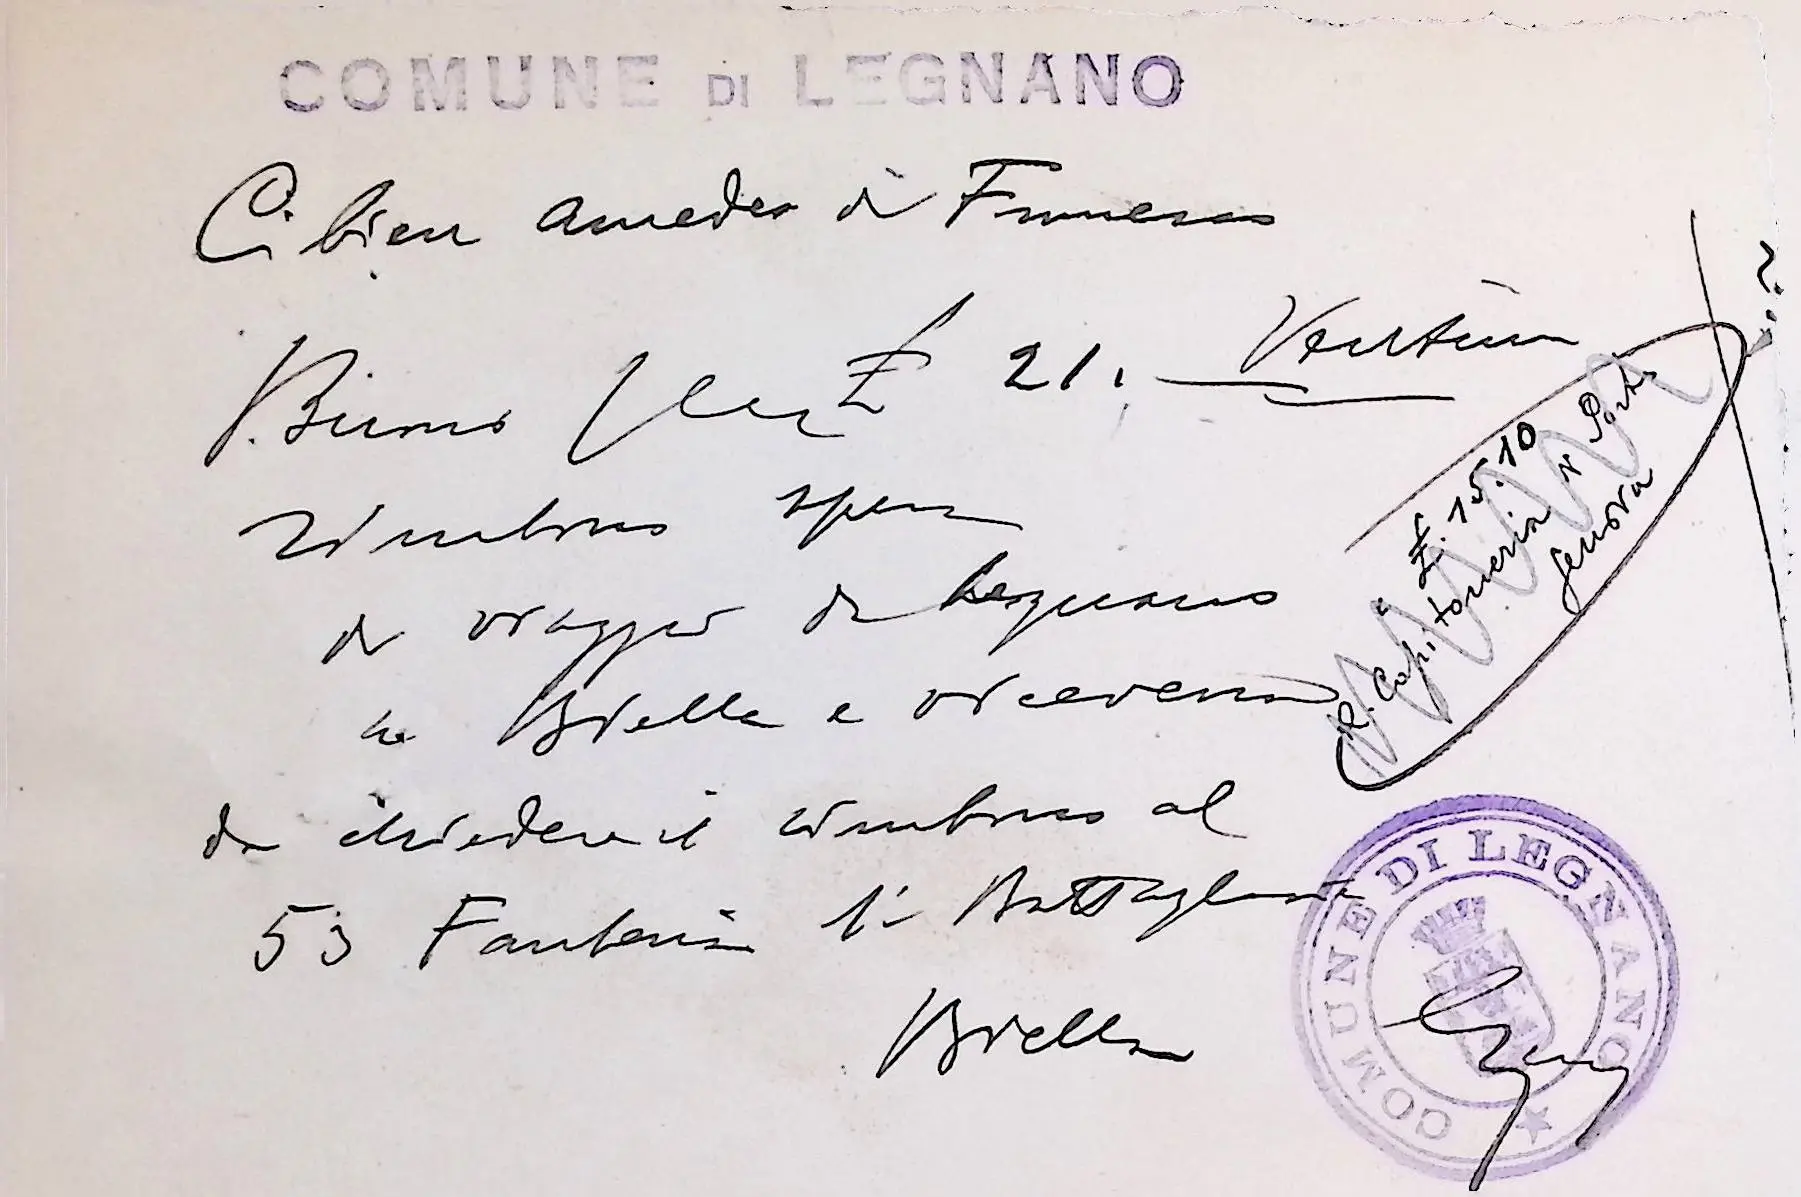 COMUNE DI LEGNANO
Cibien Amedeo di Francesco
Buono per £ 21. Ventuno
rimborso spese
di viaggio da Legnano
a Biella e viceversa
da chiedere il rimborso al
53 Fanteria 1° Battaglione
Biella
£. 15.10
R. Capitaneria di Porto
Genova
COMUNE DI LEGNANO